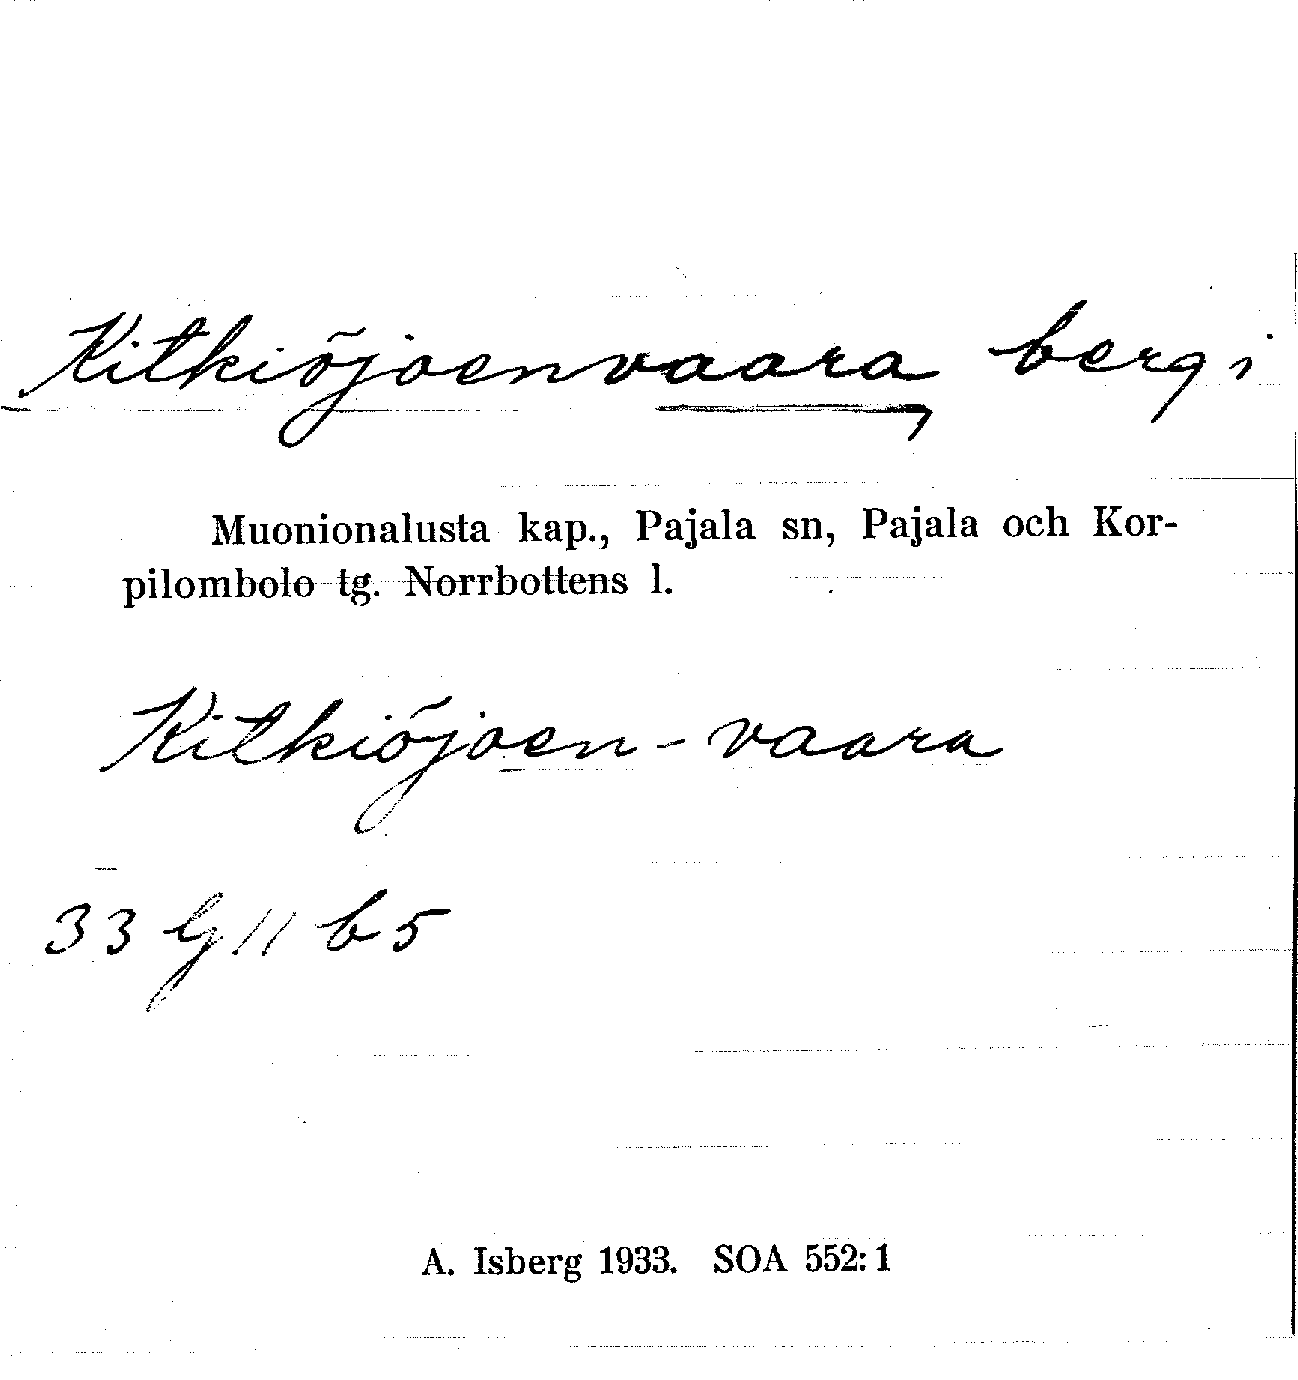 Kitkiöjoenvaara berg i
Muonionalusta kap., Pajala sn, Pajala och Kor-
pilombolo tg. Norrbottens l.
Kitkiöjoen-vaara
33 G 11 b5
A. Isberg 1933. SOA 552:1